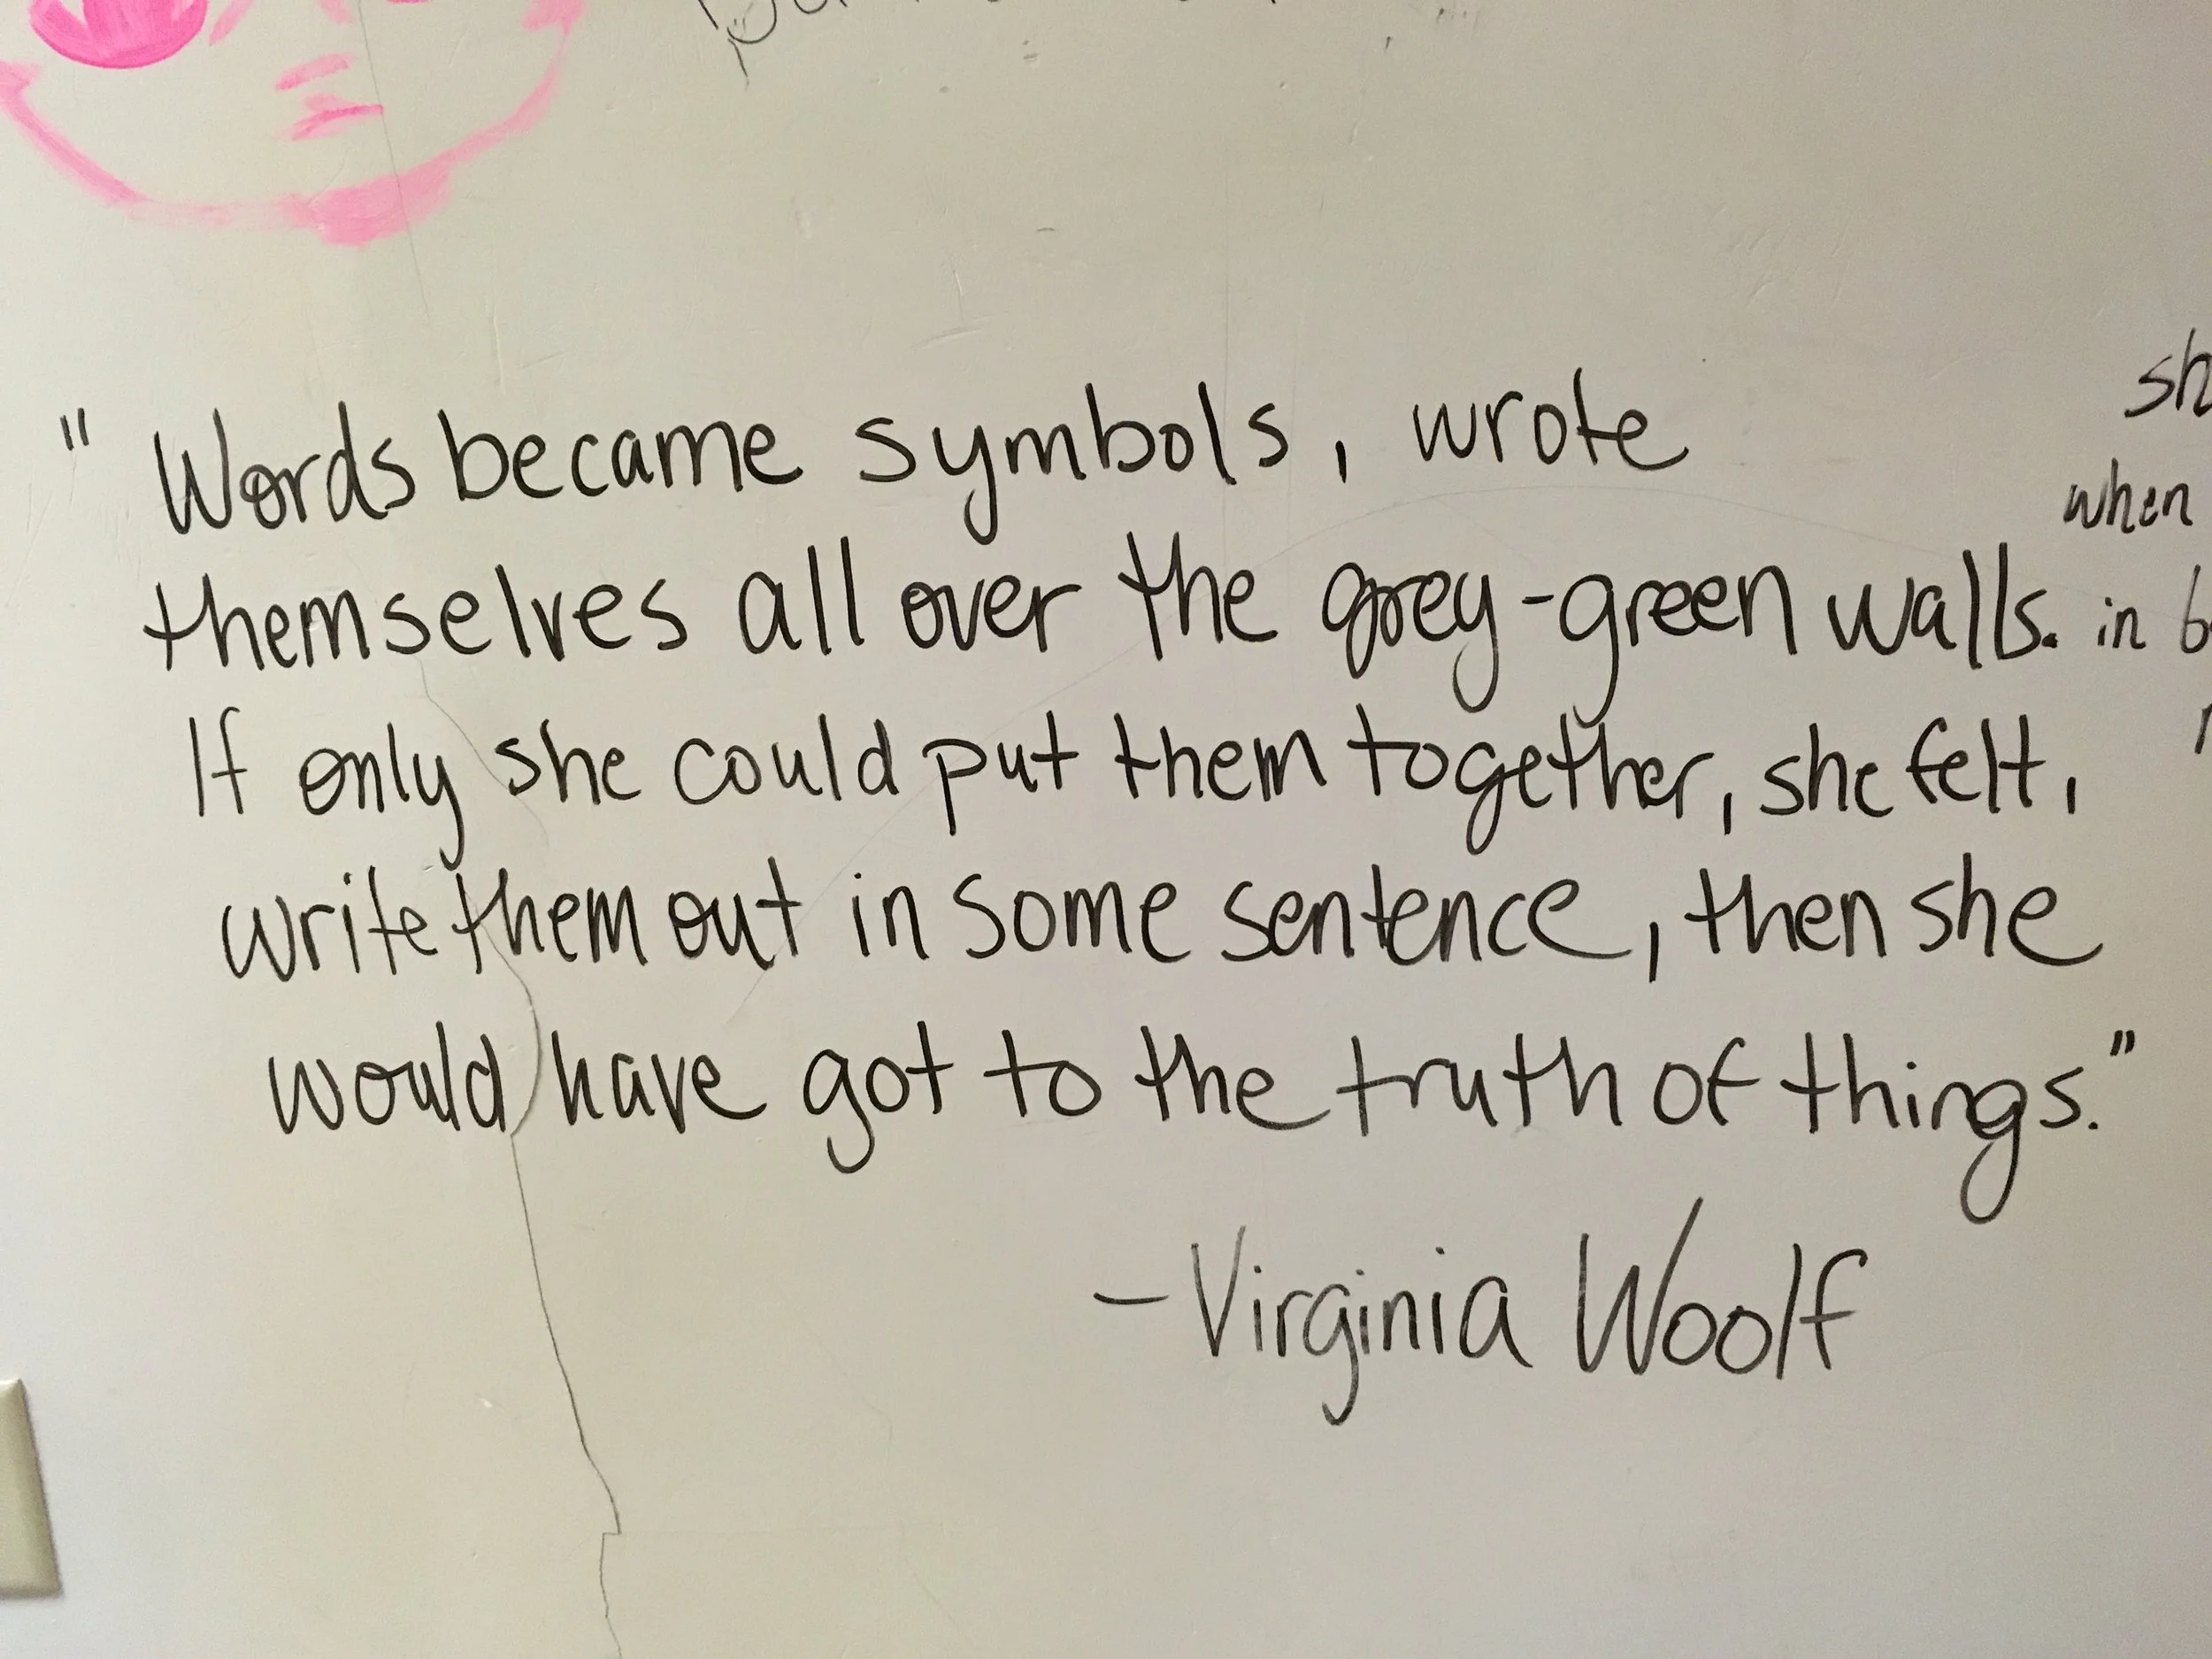 " Words became symbols, wrote
themselves all over the grey-green walls.
If only she could put them together, she felt,
write them out in some sentence, then she
would have got to the truth of things."
- Virginia Woolf
when
in